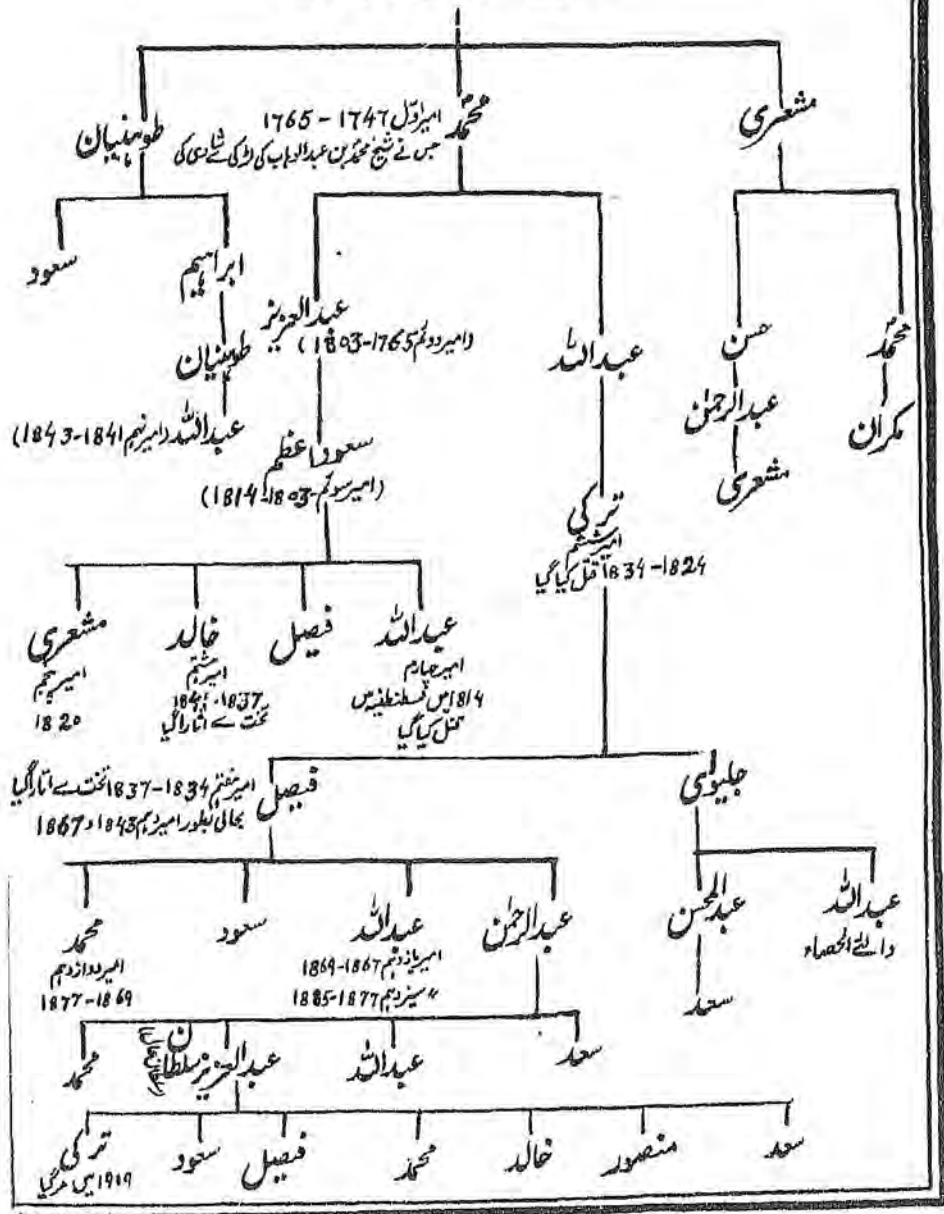 مشعری
محمدؐ امیر اوّل 1747 - 1765
جس نے شیخ محمدؐ بن عبدالوہاب کی لڑکی سے شادی کی
طوہنیان
محمدؐ
حسن
عبداللہ
عبدالعزیز
(امیر دوئم 1765-1803)
ابراہیم
سعود
مکران
عبدالرحمٰن
مشعری
طوہنیان
عبداللہ (امیر نہم 1841-1843)
سعود اعظم
(امیر سوئم 1803-1814)
ترکی
امیر ششم
1824-1834 قتل کیا گیا
عبداللہ
امیر چہارم
1814 میں قسطنطنیہ میں
قتل کیا گیا
فیصل
خالد
امیر ہشتم
1837-1841
تخت سے اتارا گیا
مشعری
امیر پنجم
1820
جلیوای
فیصل امیر ہفتم 1834-1837 تخت سے اتارا گیا
بحالی بطور امیر دہم 1843، 1867
عبداللہ
والئے الحصاء
عبدالمحسن
عبدالرحمٰن
عبداللہ
امیر یازدہم 1867-1869
〃 سیزدہم 1877-1885
سعود
محمد
امیر دوازدہم
1869-1877
سعد
سعد
عبداللہ
عبدالعزیز سلطان
محمد
سعد
منصور
خالد
محمد
فیصل
سعود
ترکی
1919 میں مر گیا